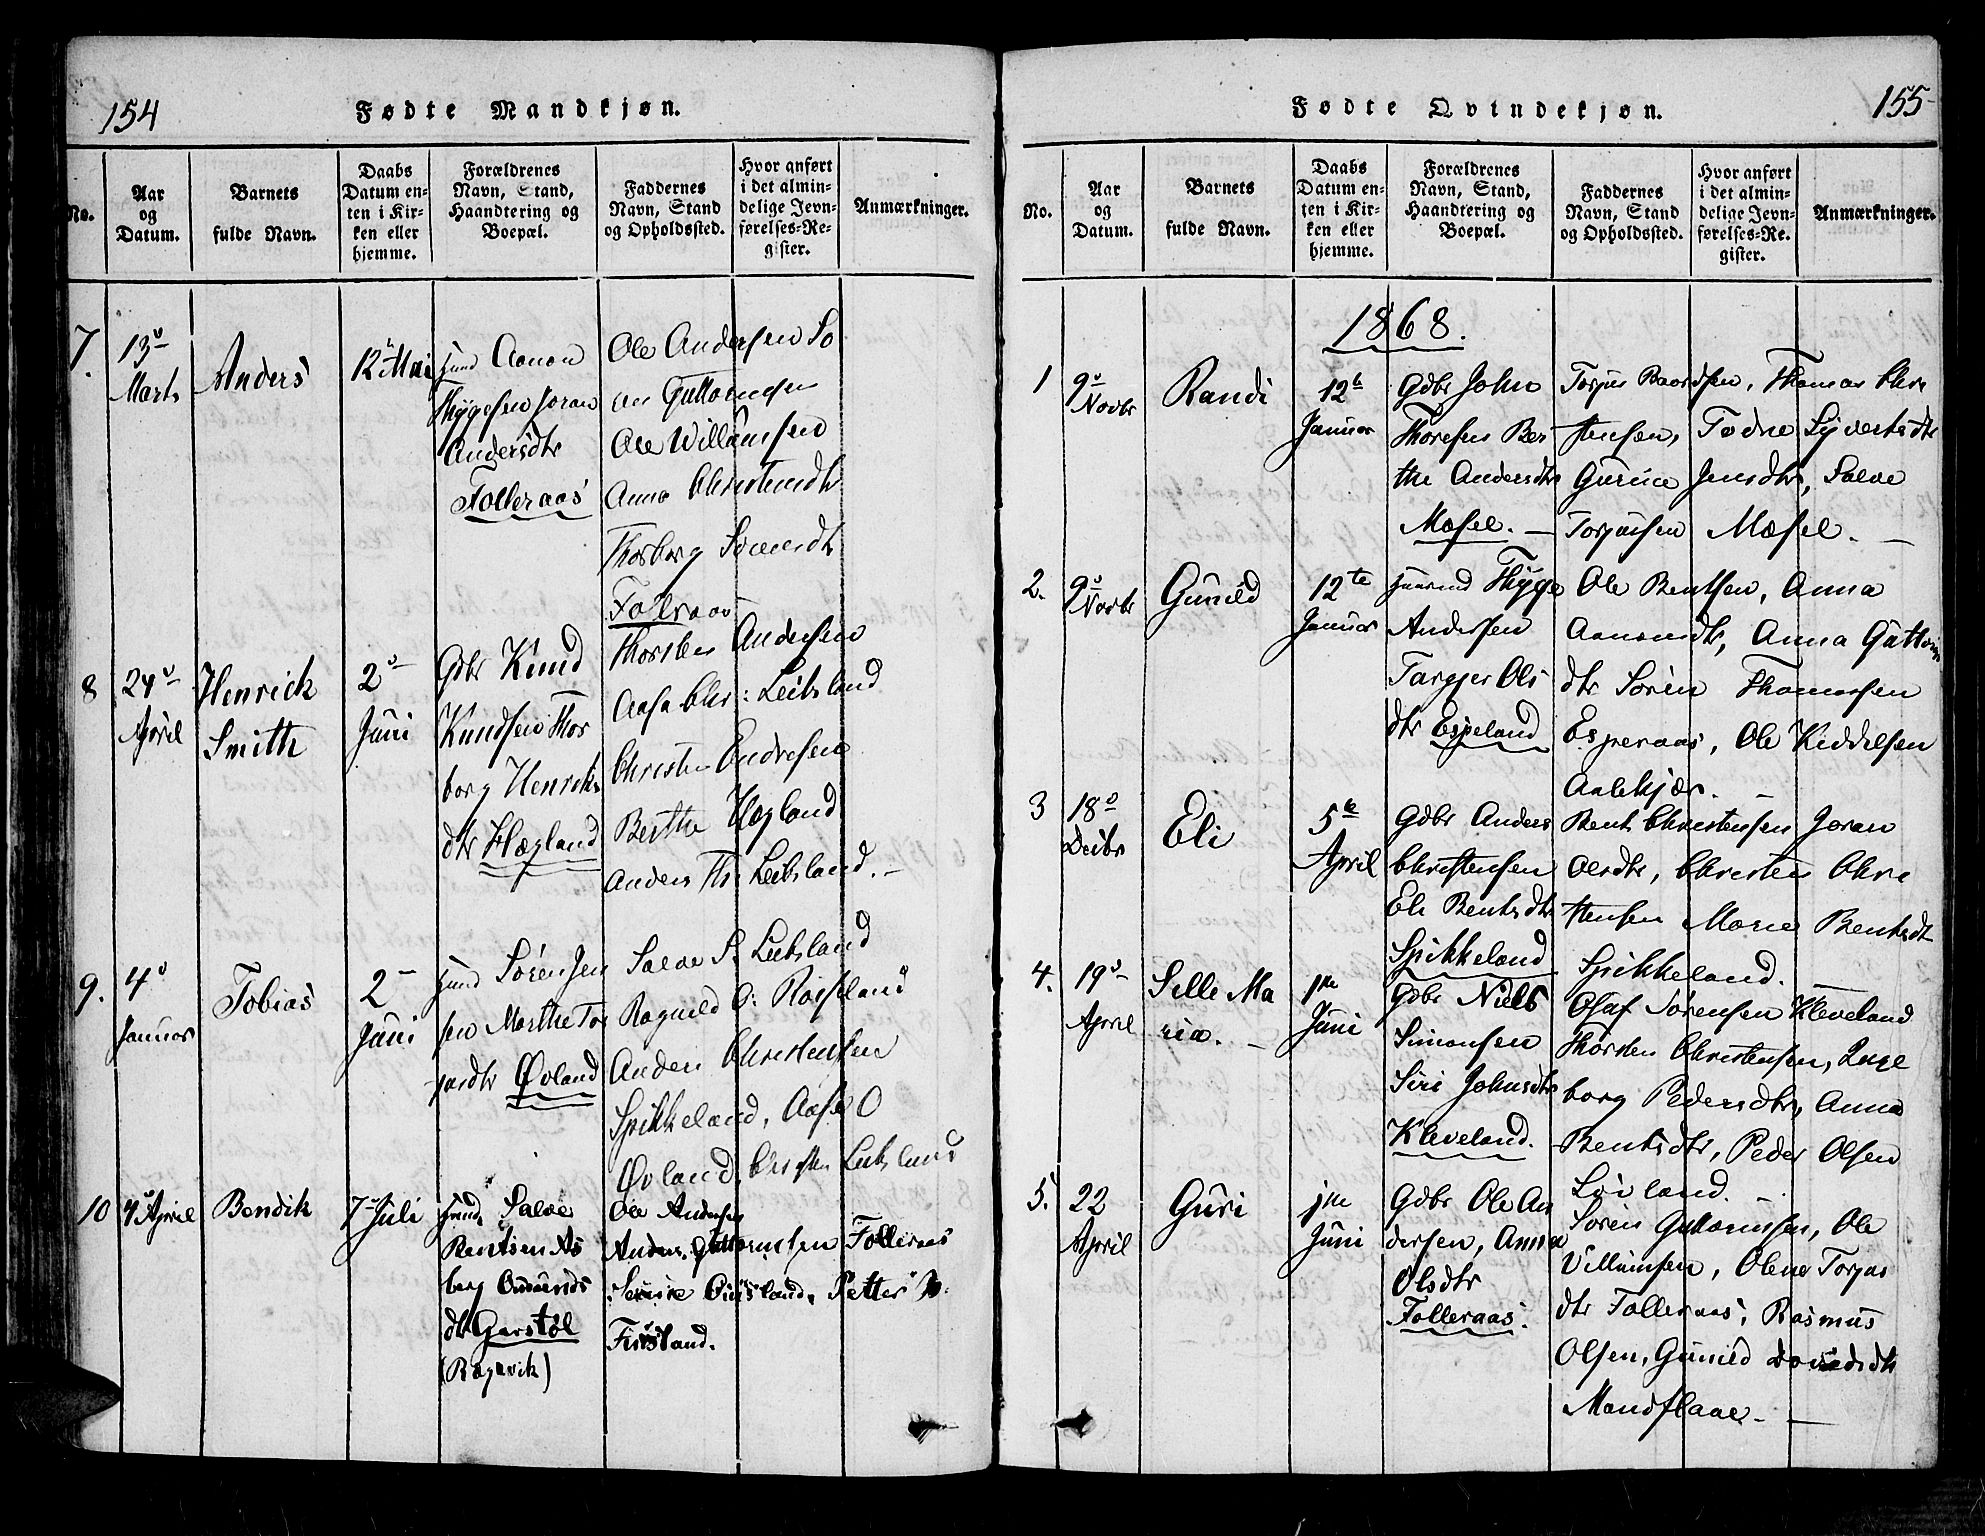 154
Fødte Mandkjøn.
No.
Aar
og
Datum.
Barnets
fulde Navn.
Daabs
Datum en-
ten i Kir-
ken eller
hjemme.
Forældrenes
Navn, Stand,
Haandtering og
Boepæl.
Faddernes
Navn, Stand
og Opholdssted.
Hvor anført
i det almin-
delige Jevn-
førelses-Re-
gister.
Anmærkninger.
7.
13
Marts
Anders
12 Mai
Aanon
Thygesen Joran
Andersdtr
Folleraas
Ole Andersen
Guttormsen
Ole Willumsen
Anna Christensdtr
Thorborg
Follraas
8
24
April
Henrick
Smith
2
Juni
Gdbr Knud
Knudsen Thor
borg Henriks
dtr Hægland
Thorsten Andersen
Aasa Chr: Leibsland
Christen Endresen
Berthe Hægland
Anders Th: Leibsland. –
9.
4
Januar
Tobias
2
Juni
Søren Jen
sen Marthe Tor
jusdtr Øvland
Salve S. Leibsland
Ragnild O: Rosseland
Anders Christensen
Spikkeland, Aase O
Øvland, Christen Leibsland
10
4 April
Bendik
7 Juli
Salve
Bentsen As
berg
dtr Garstøl
(Røgevik)
Ole Andersen
Anders Guttormsen Folleraas
Petter
Fiskland.
155
Fødte Qvindekjøn.
No.
Aar
og
Datum.
Barnets
fulde Navn.
Daabs
Datum en-
ten i Kir-
ken eller
hjemme.
Forældrenes
Navn, Stand,
Haandtering og
Boepæl.
Faddernes
Navn, Stand
og Opholdssted.
Hvor anført
i det almin-
delige Jevn-
førelses-Re-
gister.
Anmærkninger.
1868.
1
9
Novbr
Randi
12te
Januar
Gdbr John
Thoresen Ber
the Andersdtr
Mæsel. –
Torjus Baardsen, Thomas Chri
stensen, Todne Syvertsdtr
Gurine Jensdtr, Salve
Torjussen Mæsel. –
2.
9
Novbr
Gunild
12te
Januar
Thyge
Andersen
Targjer Ols
dtr Espeland
Ole Bentsen, Anna
Aanondtr, Anna Guttorms
dtr Søren Thomassen
Esperaas, Ole Kiddelsen
Aalekjær. –
3
18
Decbr
Eli
5te
April
Gdbr Anders
Christensen
Eli Bentsdtr
Spikkeland
Bent Christensen Joran
Olsdtr, Christen Chri
stensen Marie Bentsdtr
Spikkeland. –
4.
19
April
Sille Ma
ria. –
1ste
Juni
Gdbr Niels
Simonsen
Siri Johnsdtr
Kleveland.
Olaf Sørensen Kleveland
Thorsten Christensen, Inge
borg Pedersdtr, Anna
Bentsdtr, Peder Olsen
Løiland. –
5.
22
April
Guri
1ste
Juni
Gdbr Ole An
dersen, Anna
Olsdtr
Folleraas.
Søren Guttormsen, Ole
Villumsen, Olene Torjus
dtr Folleraas, Rasmus
Olsen, Gunild Davidsdtr
Mandflaae. –